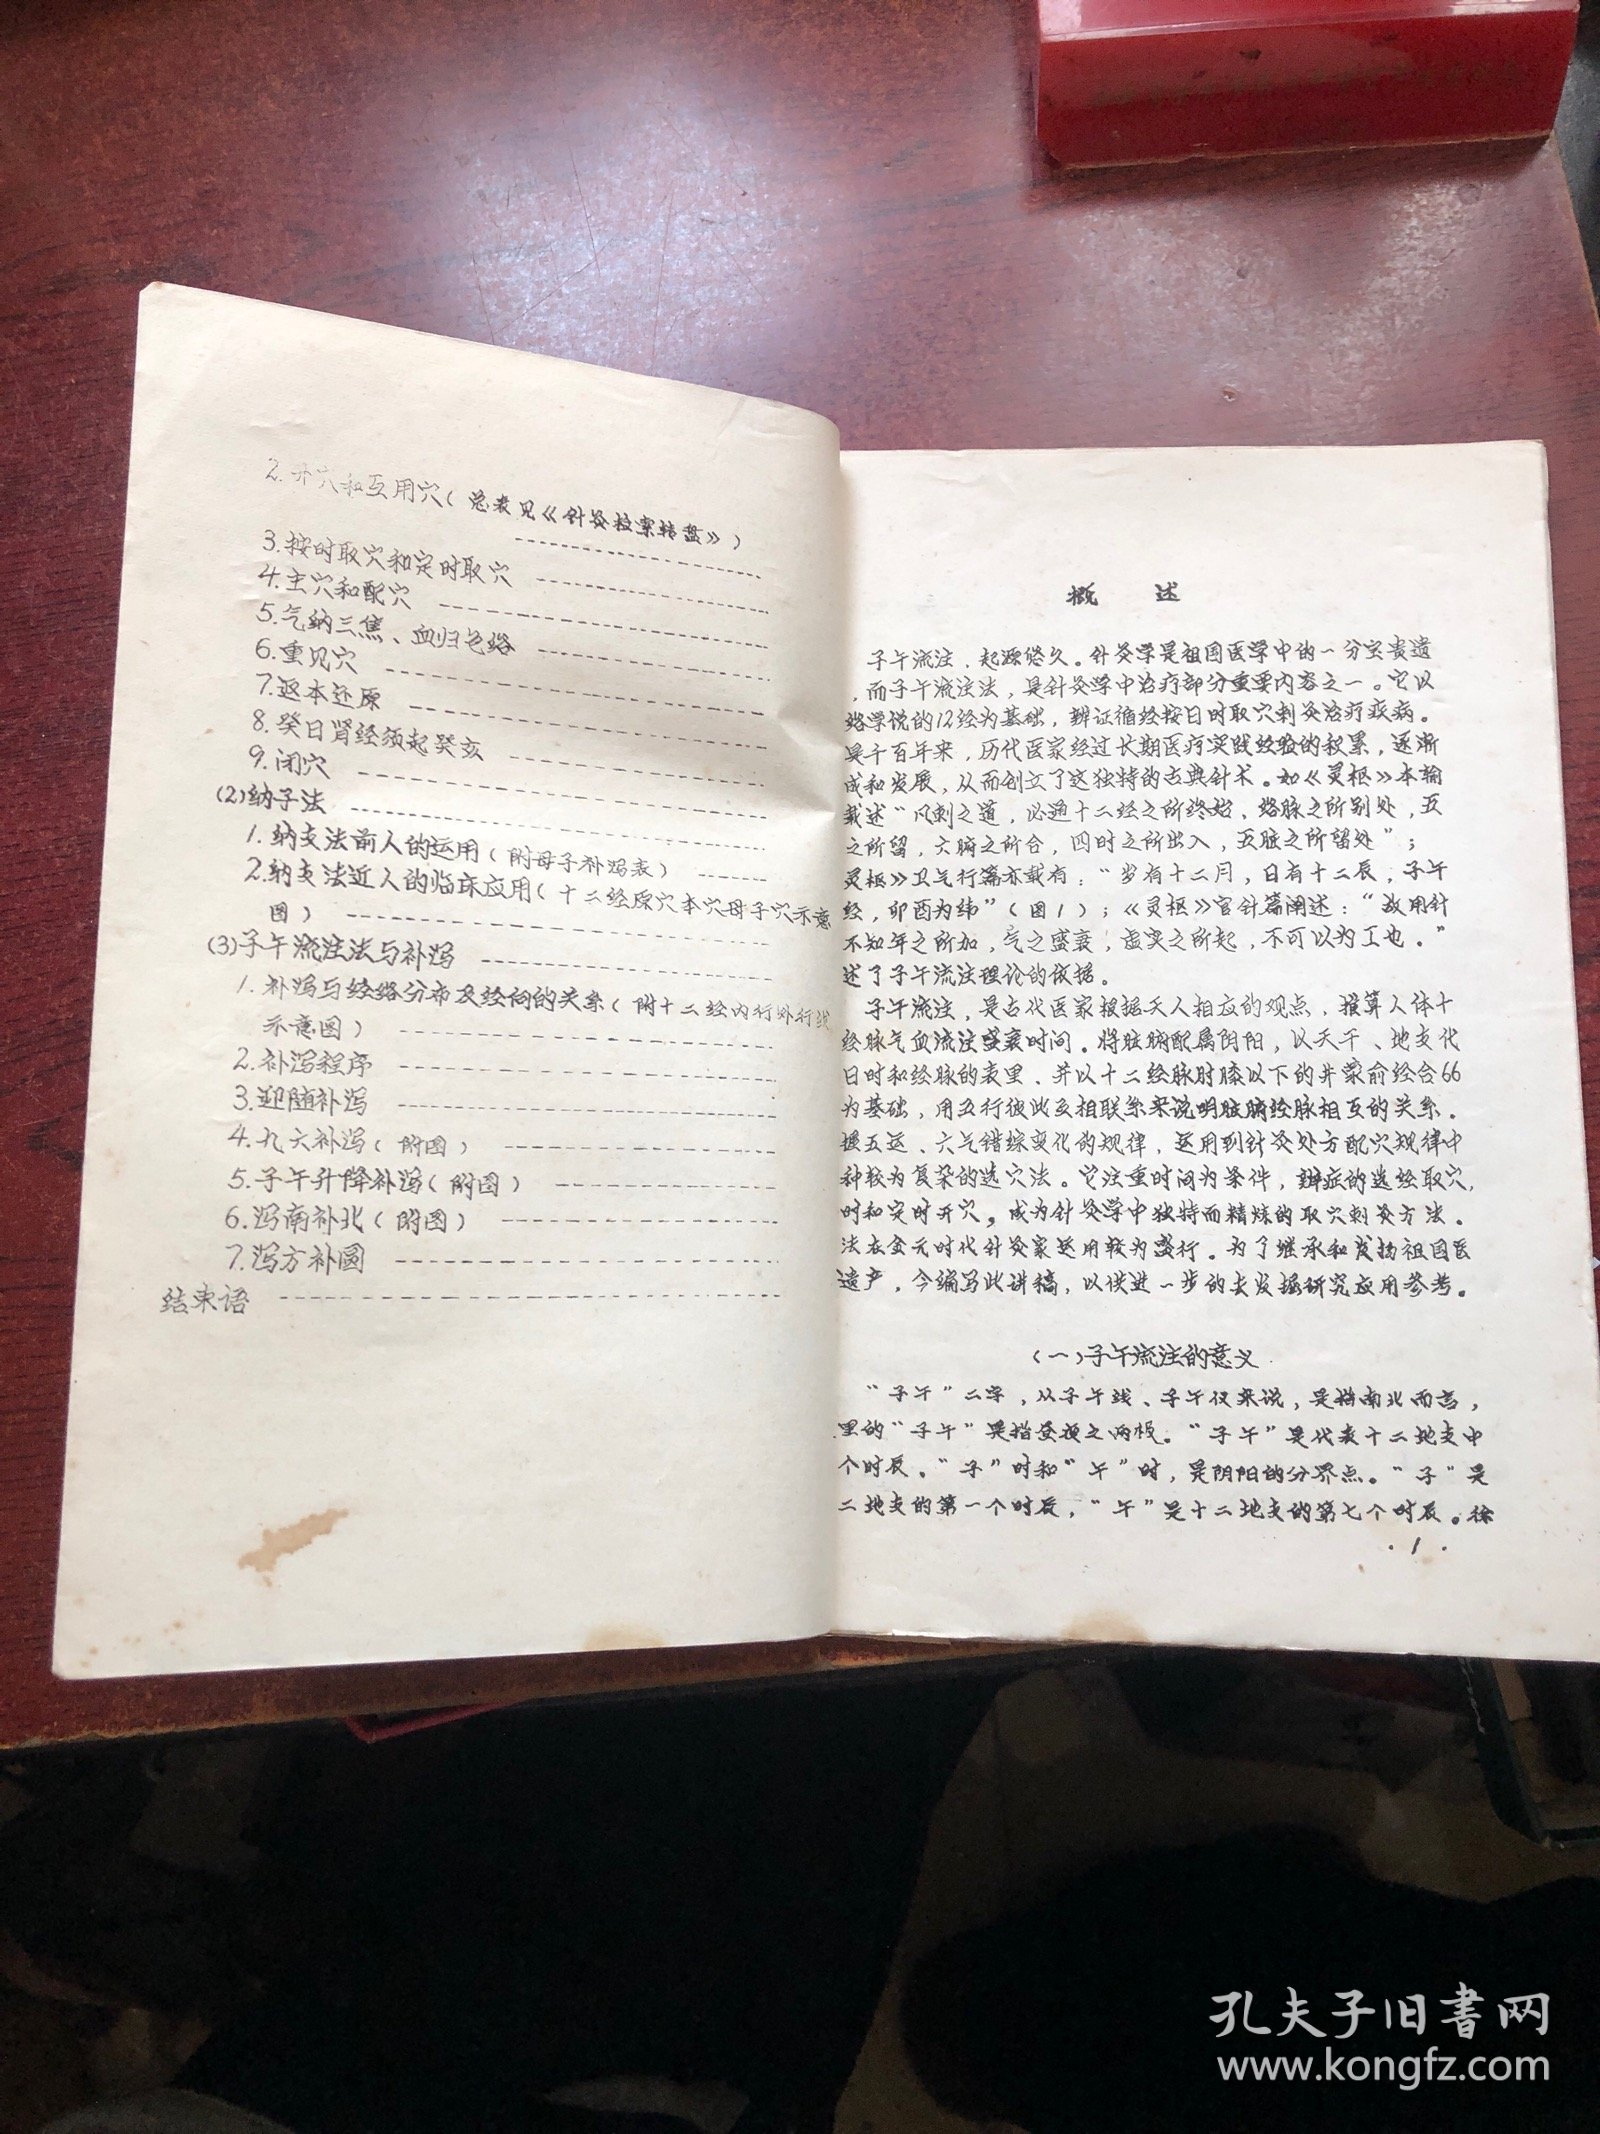 2.开穴和互用穴(总表见《针灸检索转盘》)
3.按时取穴和定时取穴
4.主穴和配穴
5.气纳三焦、血归包络
6.重见穴
7.返本还原
8.癸日肾经须起癸亥
9.闭穴
(2)纳子法
1.纳支法前人的运用(附母子补泻表)
2.纳支法近人的临床应用(十二经原穴本穴母子穴示意
图)
(3)子午流注法与补泻
1.补泻与经络分布及经向的关系(附十二经内行外行线
示意图)
2.补泻程序
3.迎随补泻
4.九六补泻(附图)
5.子午升降补泻(附图)
6.泻南补北(附图)
7.泻方补圆
结束语
概 述
子午流注,起源悠久。针灸学是祖国医学中的一分宝贵遗
,而子午流注法,是针灸学中治疗部分重要内容之一。它以
络学说的12经为基础,辨证循经按日时取穴刺灸治疗疾病。
是千百年来,历代医家经过长期医疗实践经验的积累,逐渐
成和发展,从而创立了这独特的古典针术。如《灵枢》本输
载述“凡刺之道,必通十二经之所终始、络脉之所别处,五
之所留,六腑之所合,四时之所出入,五脏之所留处”;
灵枢》卫气行篇亦载有:“岁有十二月,日有十二辰,子午
经,卯酉为纬”(图1);《灵枢》官针篇阐述:“故用针
不知年之所加,气之盛衰,虚实之所起,不可以为工也。”
述了子午流注理论的依据。
子午流注,是古代医家根据天人相应的观点,推算人体十
经脉气血流注盛衰时间。将脏腑配属阴阳,以天干、地支化
日时和经脉的表里、并以十二经脉肘膝以下的井荥俞经合66
为基础,用五行彼此互相联系来说明脏腑经脉相互的关系。
据五运、六气错综变化的规律,运用到针灸处方配穴规律中
种较为复杂的选穴法。它注重时间为条件,辨症的选经取穴,
时和定时开穴。成为针灸学中独特而精炼的取穴刺灸方法。
法在金元时代针灸家运用较为盛行。为了继承和发扬祖国医
遗产,今编写此讲稿,以供进一步的去发掘研究应用参考。
(一)子午流注的意义
“子午”二字,从子午线、子午仪来说,是指南北而言,
里的“子午”是指昼夜之两极。“子午”是代表十二地支中
个时辰。“子”时和“午”时,是阴阳的分界点。“子”是
二地支的第一个时辰,“午”是十二地支的第七个时辰。徐
·1·
孔夫子旧书网
www.kongfz.com